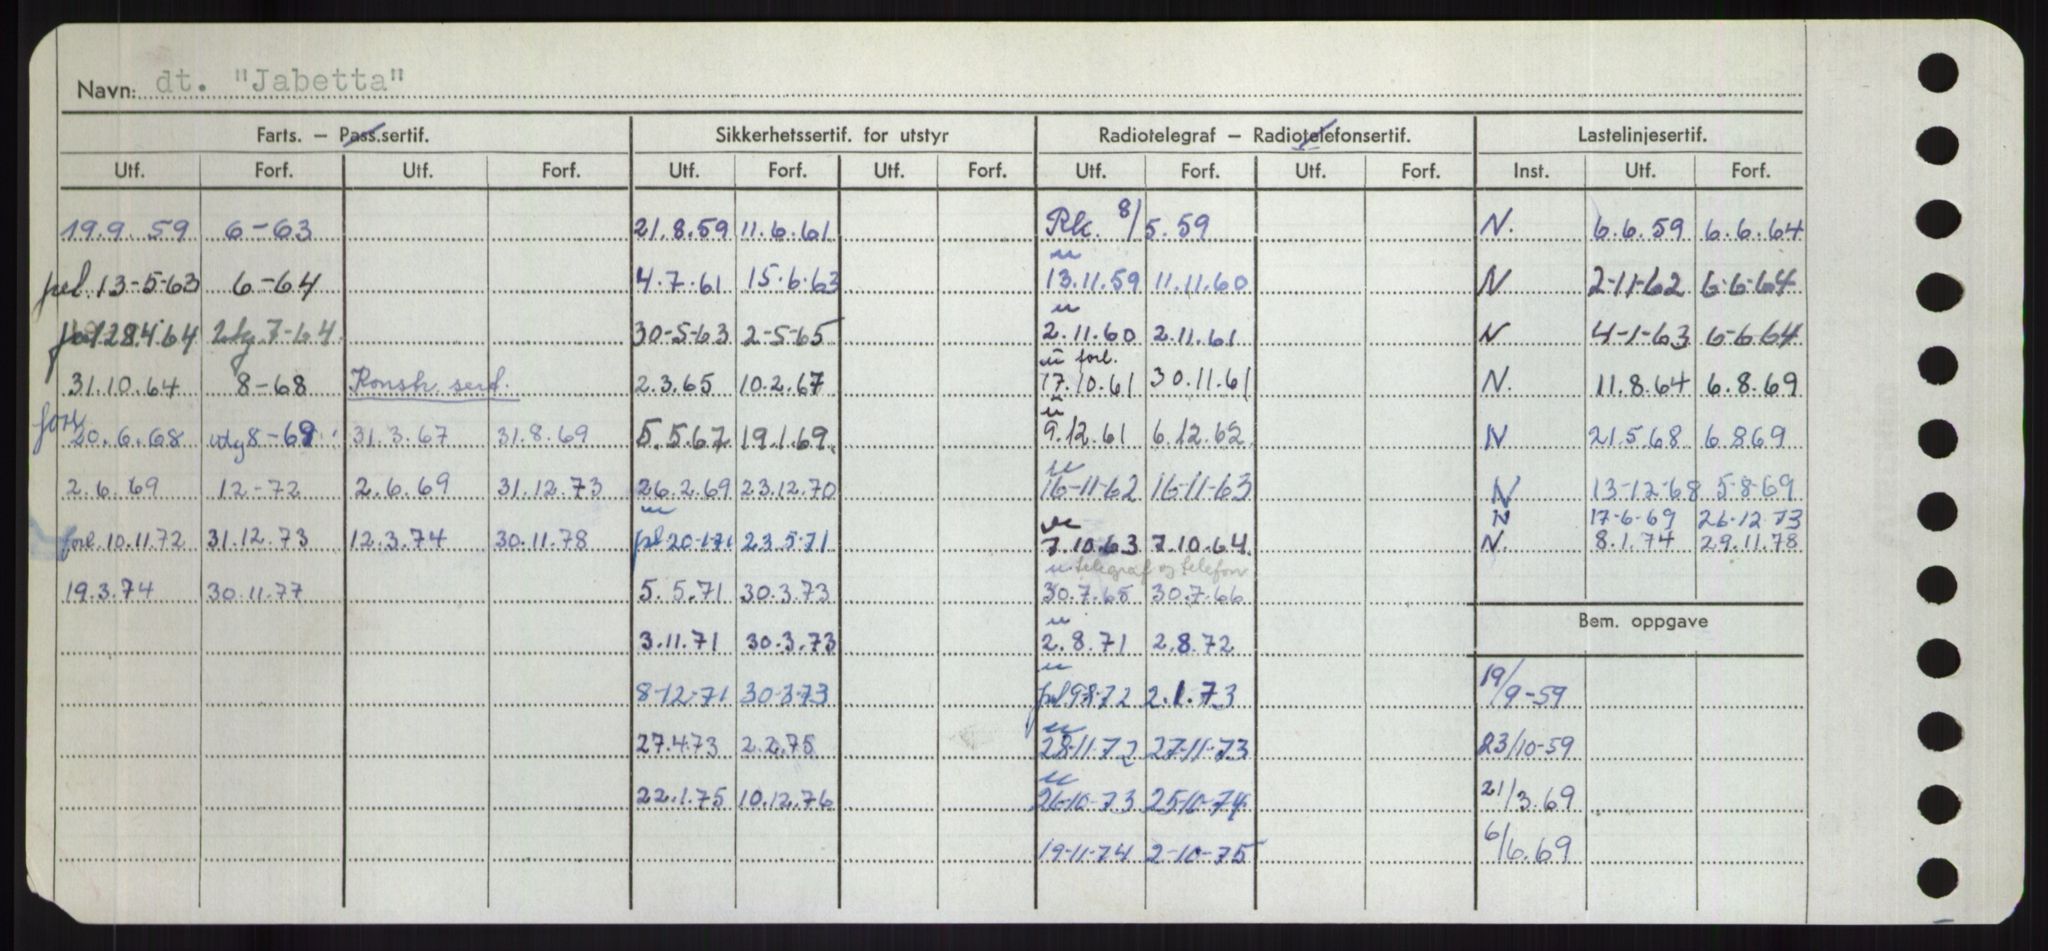 Navn: dt. "Jabetta"
Farts. – Pass.sertif. Sikkerhetssertif. for utstyr Radiotelegraf – Radiotelefonsertif. Lastelinjesertif.
Utf. Forf. Utf. Forf. Utf. Forf. Utf. Forf. Utf. Forf. Utf. Forf. Inst. Utf. Forf.
19.9.59 6-63 21.8.59 11.6.61 Rk. 8/5.59 N. 6.6.59 6.6.64
pel. 13-5-63 6-64 4.7.61 15.6.63 13.11.59 11.11.60 N 2-11-62 6-6-64
28.4.64 7-64 30-5-63 2-5-65 2.11.60 2.11.61 N 4-1-63 6-6-64
forl.
31.10.64 8-68 Konstr. sert. 2.3.65 10.2.67 17.10.61 30.11.61 N. 11.8.64 6.8.69
20.6.68 8-69 31.3.67 31.8.69 5.5.67 19.1.69 9.12.61 6.12.62 N 21.5.68 6.8.69
2.6.69 12-72 2.6.69 31.12.73 26.2.69 23.12.70 16-11-62 16-11-63 N 13-12-68 5-8-69
N 17-6-69 26.12.73
forl. 10.11.72 31.12.73 12.3.74 30.11.78 20-1-71 23.5.71 7.10.63 7.10.64 N. 8.1.74 29.11.78
telegraf og telefon
19.3.74 30.11.77 5.5.71 30.3.73 30.7.65 30.7.66
Bem. oppgave
3.11.71 30.3.73 2.8.71 2.8.72
8-12-71 30-3-73 2.1.73 19/9-59
27.4.73 2.2.75 28-11-72 27-11-73 23/10-59
22.1.75 10.12.76 26-10-73 25-10-74 21/3.69
19-11-74 2-10-75 6/6.69